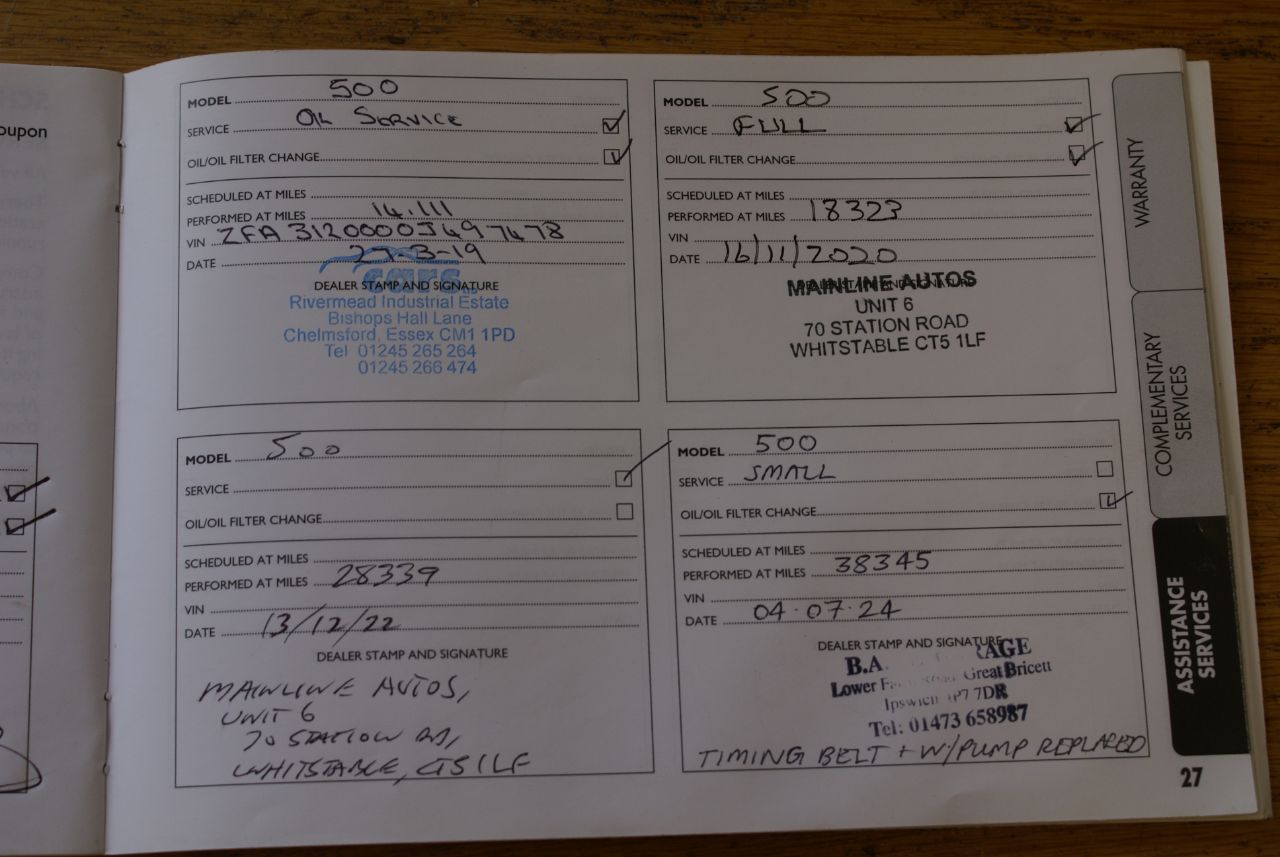 oupon
MODEL 500
SERVICE OIL SERVICE
OIL/OIL FILTER CHANGE
SCHEDULED AT MILES
PERFORMED AT MILES 14.111
VIN ZFA 3120000J497478
DATE 27-3-19
cars
DEALER STAMP AND SIGNATURE
Rivermead Industrial Estate
Bishops Hall Lane
Chelmsford, Essex CM1 1PD
Tel 01245 265 264
01245 266 474
MODEL 500
SERVICE FULL
OIL/OIL FILTER CHANGE
SCHEDULED AT MILES
PERFORMED AT MILES 18323
VIN
DATE 16/11/2020
DEALER STAMP AND SIGNATURE
MAINLINE AUTOS
UNIT 6
70 STATION ROAD
WHITSTABLE CT5 1LF
MODEL 500
SERVICE
OIL/OIL FILTER CHANGE
SCHEDULED AT MILES
PERFORMED AT MILES 28339
VIN
DATE 13/12/22
DEALER STAMP AND SIGNATURE
MAINLINE AUTOS,
UNIT 6
70 STATION RD,
WHITSTABLE, CT5 1LF
MODEL 500
SERVICE SMALL
OIL/OIL FILTER CHANGE
SCHEDULED AT MILES
PERFORMED AT MILES 38345
VIN
DATE 04.07.24
DEALER STAMP AND SIGNATURE
B.A.
Lower Great Bricett
Ipswich IP7 7DR
Tel: 01473 658987
TIMING BELT + W/PUMP REPLACED
WARRANTY
COMPLEMENTARY
SERVICES
ASSISTANCE
SERVICES
27